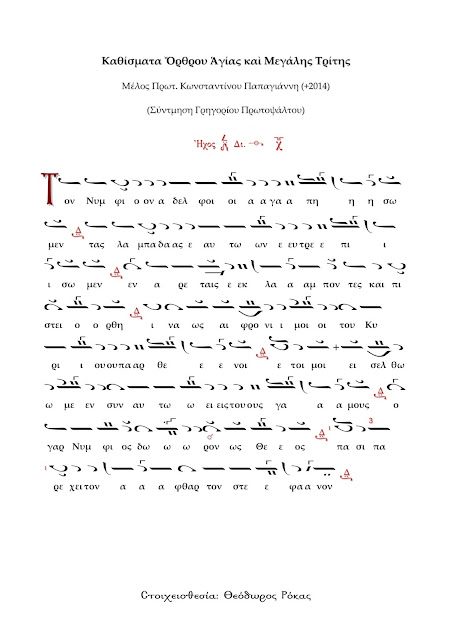 Καθίσματα Ὄρθρου Ἁγίας καὶ Μεγάλης Τρίτης
Μέλος Πρωτ. Κωνσταντίνου Παπαγιάννη (+2014)
(Σύντμηση Γρηγορίου Πρωτοψάλτου)
Ἦχος Δι.
Τ ον Νυμ φι ο ον α δελ φοι οι α α γα α πη η η σω
μεν τας λα μπα δα ας ε αυ τω ων ε ευ τρε ε πι ι
ι σω μεν εν α ρε ταις ε εκ λα α αμ πον τες και πι
στει ο ο ρθη ι να ως αι φρο νι ι μοι οι του Κυ
ρι ι ου ου πα αρ θε ε ε νοι ε τοι μοι ει σελ θω
ω με εν συν αυ τω ω ει εις τους ου ς γα α α μους ο
γαρ Νυμ φι ος δω ω ω ρον ως Θε ε ος πα σι πα
ρε χει τον α α α φθαρ τον στε ε φα α νον
Στοιχειοθεσία: Θεόδωρος Ρόκας